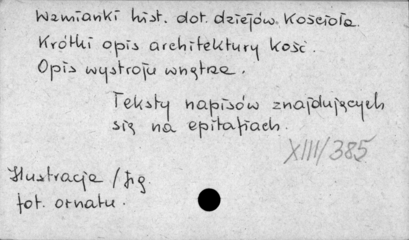 Wzmianki hist. dot. dziejów Kościoła.
Krótki opis architektury kość.
Opis wystroju wnętrza.
Teksty napisów znajdujących
się na epitafiach.
XIII/385
Ilustracje / fig.
fot. ornatu.